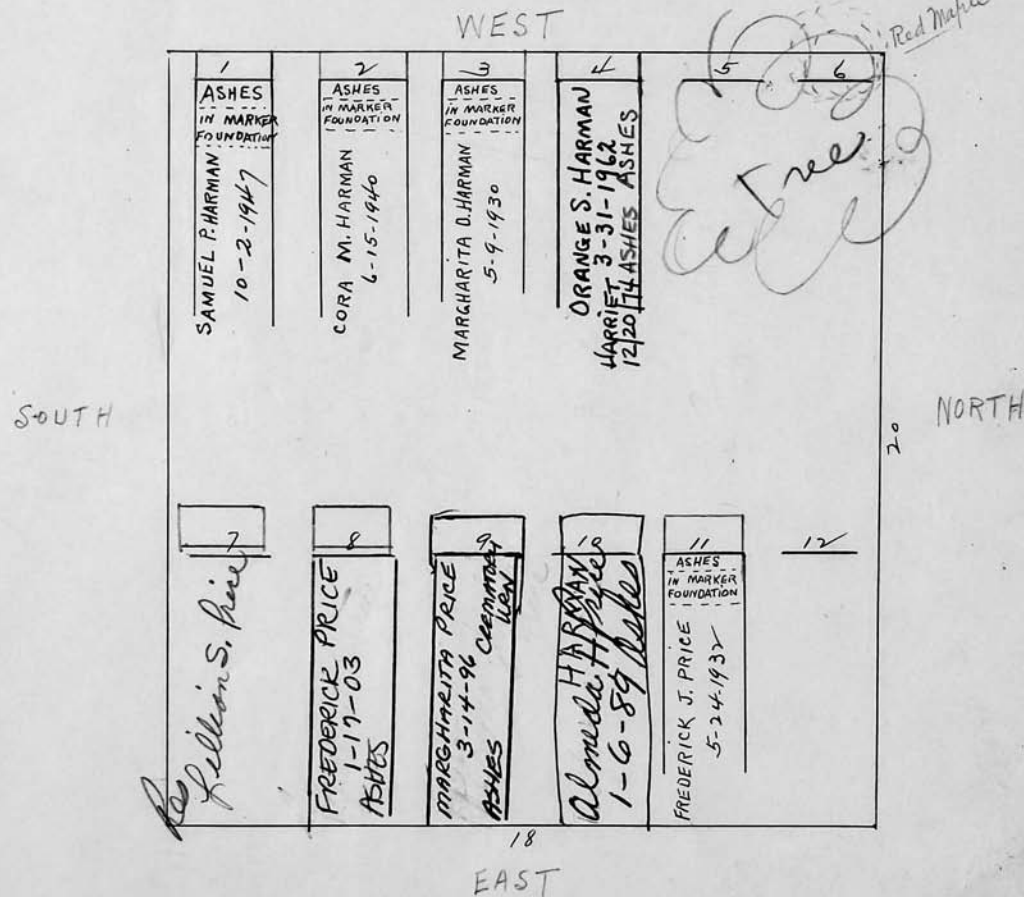 WEST
Red Maple
1
ASHES
IN MARKER
FOUNDATION
SAMUEL P. HARMAN
10-2-1947
2
ASHES
IN MARKER
FOUNDATION
CORA M. HARMAN
6-15-1940
3
ASHES
IN MARKER
FOUNDATION
MARGHARITA D. HARMAN
5-9-1930
4
ORANGE S. HARMAN
HARRIET 3-31-1962
12/20/74 ASHES ASHES
5
6
Tree
SOUTH
NORTH
20
7
Res Lillian S. Price
8
FREDERICK PRICE
1-17-03
ASHES
9
MARGHARITA PRICE
3-14-96 CREMATORY
ASHES URN
10
HARMAN
Almeda H Price
1-6-89 Ashes
11
ASHES
IN MARKER
FOUNDATION
FREDERICK J. PRICE
5-24-1932
12
18
EAST